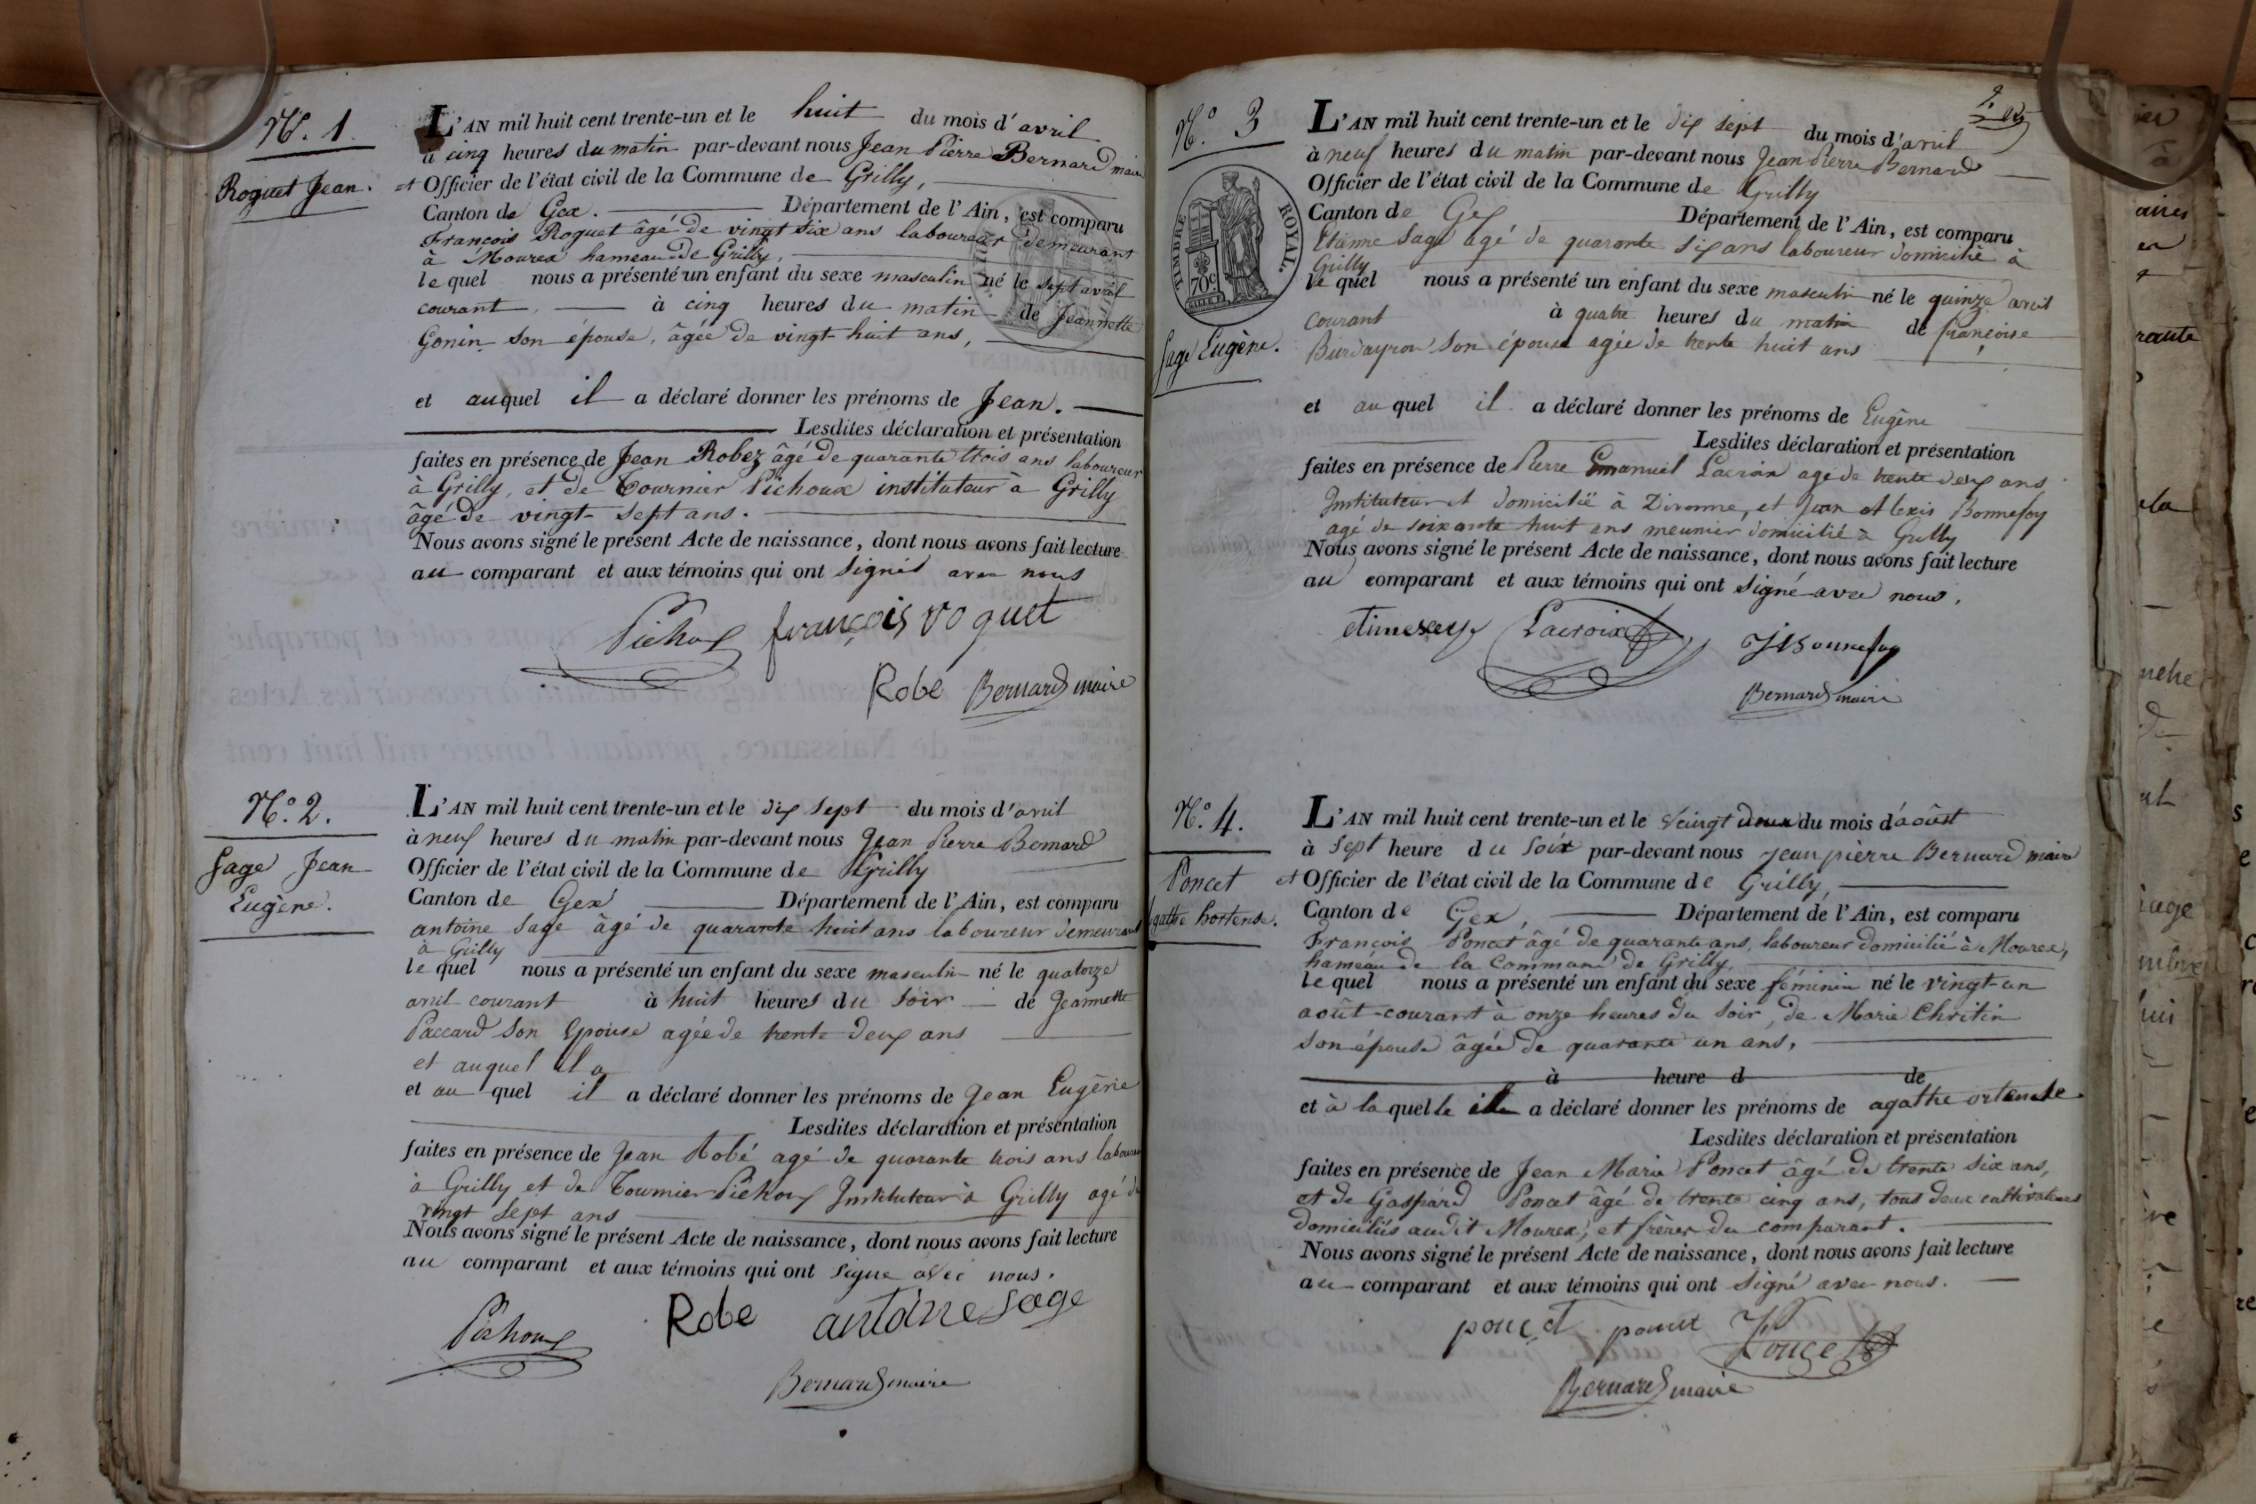 N.º 1.
Roguet Jean.
L'AN mil huit cent trente-un et le huit du mois d'avril
à cinq heures du matin par-devant nous Jean Pierre Bernard maire
et Officier de l'état civil de la Commune de Grilly,
Canton de Gex. Département de l'Ain, est comparu
François Roguet âgé de vingt six ans laboureur demeurant
à Mourex hameau de Grilly,
lequel nous a présenté un enfant du sexe masculin né le sept avril
courant, à cinq heures du matin de Jeannette
Gonin son épouse, âgée de vingt-huit ans,
et auquel il a déclaré donner les prénoms de Jean.
Lesdites déclaration et présentation
faites en présence de Jean Robez âgé de quarante trois ans laboureur
à Grilly, et de Tournier Pichoux instituteur à Grilly
âgé de vingt-sept ans.
Nous avons signé le présent Acte de naissance, dont nous avons fait lecture
au comparant et aux témoins qui ont signés avec nous
Pichoux françois roguet
Robe Bernard maire
N.º 2.
Sage Jean
Eugène.
L'AN mil huit cent trente-un et le dix sept du mois d'avril
à neuf heures du matin par-devant nous Jean Pierre Bernard
Officier de l'état civil de la Commune de Grilly
Canton de Gex Département de l'Ain, est comparu
antoine Sage âgé de quarante huit ans laboureur demeurant
à Grilly
lequel nous a présenté un enfant du sexe masculin né le quatorze
avril courant à huit heures du soir de Jeannette
Paccard son épouse agée de trente deux ans
et auquel il a
et au quel il a déclaré donner les prénoms de Jean Eugène
Lesdites déclaration et présentation
faites en présence de Jean Robé agé de quarante trois ans laboureur
à Grilly et de Tournier Pichoux Instituteur à Grilly agé de
vingt sept ans
Nous avons signé le présent Acte de naissance, dont nous avons fait lecture
au comparant et aux témoins qui ont signé avec nous.
Pichoux Robe antoine sage
Bernard maire
2.
N.º 3
TIMBRE ROYAL.
70c
Sage Eugène.
L'AN mil huit cent trente-un et le dix sept du mois d'avril
à neuf heures du matin par-devant nous Jean Pierre Bernard
Officier de l'état civil de la Commune de Grilly
Canton de Gex Département de l'Ain, est comparu
Etienne Sage agé de quarante six ans laboureur domicilié à
Grilly
lequel nous a présenté un enfant du sexe masculin né le quinze avril
courant à quatre heures du matin de françoise
Burdayron son épouse agée de trente huit ans
et au quel il a déclaré donner les prénoms de Eugène
Lesdites déclaration et présentation
faites en présence de Pierre Emanuel Lacroix agé de trente deux ans
Instituteur et domicilié à Divonne, et Jean Alexis Bonnefoy
agé de soixante huit ans meunier domicilié à Grilly
Nous avons signé le présent Acte de naissance, dont nous avons fait lecture
au comparant et aux témoins qui ont signé avec nous.
Lacroix
Bernard maire
N.º 4.
Poncet
agathe hortense.
L'AN mil huit cent trente-un et le veingt deux du mois d'août
à sept heure du soir par-devant nous jean pierre Bernard maire
et Officier de l'état civil de la Commune de Grilly,
Canton de Gex, Département de l'Ain, est comparu
François Poncet âgé de quarante ans, laboureur domicilié à Mourex,
hameau de la Commune de Grilly,
lequel nous a présenté un enfant du sexe féminin né le vingt-un
août courant à onze heures du soir, de Marie Chritin
son épouse âgée de quarante un ans,
à heure d de
et à laquelle il a déclaré donner les prénoms de agathe ortense
Lesdites déclaration et présentation
faites en présence de Jean Marie Poncet âgé de trente six ans,
et de Gaspard Poncet âgé de trente cinq ans, tous deux cultivateurs
domiciliés audit Mourex, et frères du comparant.
Nous avons signé le présent Acte de naissance, dont nous avons fait lecture
au comparant et aux témoins qui ont signé avec nous.
poncet poncet Poncet
Bernard maire